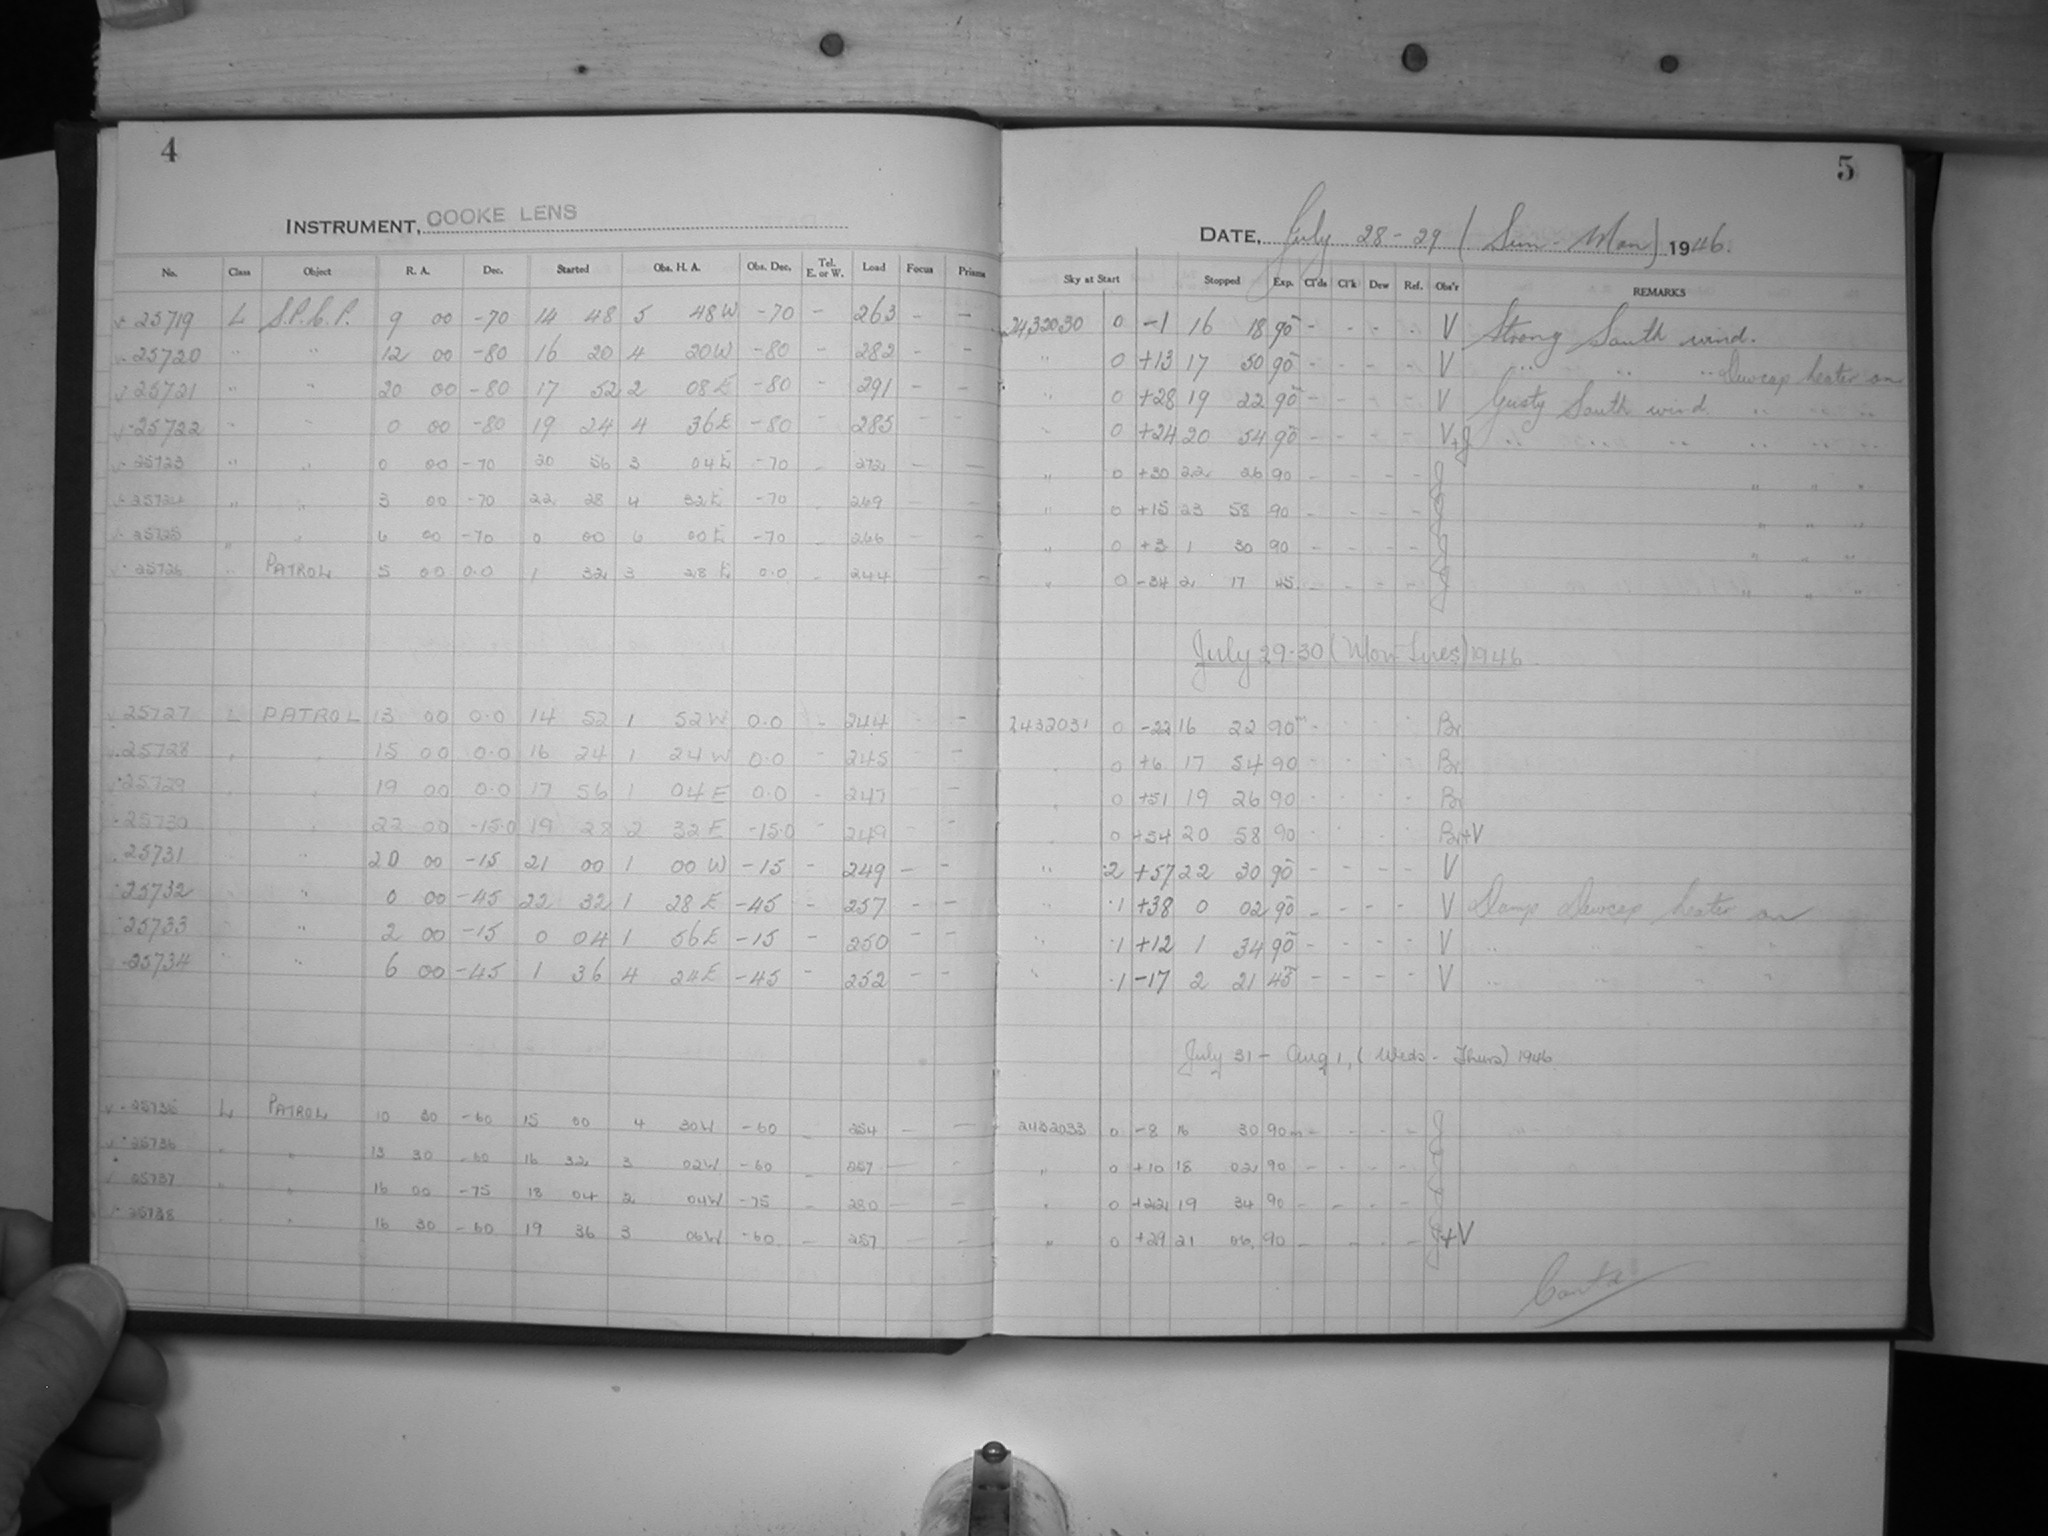 4
INSTRUMENT, COOKE LENS
No. Class Object R. A. Dec. Started Obs. H. A. Obs. Dec. Tel. E. or W. Load Focus Prisms
25719 L S.P.C.P. 9 00 -70 14 48 5 48W -70 - 263 - -
25720 " " 12 00 -80 16 20 4 20W -80 - 282 - -
25721 " " 20 00 -80 17 52 2 08E -80 - 291 - -
25722 " " 0 00 -80 19 24 4 36E -80 - 285 - -
25723 " " 0 00 -70 20 56 3 04E -70 - 272 - -
25724 " " 3 00 -70 22 28 4 32E -70 - 249 - -
25725 " " 6 00 -70 0 00 6 00E -70 - 266 - -
25726 " PATROL 5 00 0.0 1 32 3 28E 0.0 - 244 -
25727 L PATROL 13 00 0.0 14 52 1 52W 0.0 - 244 - -
25728 " " 15 00 0.0 16 24 1 24W 0.0 - 245 - -
25729 " " 19 00 0.0 17 56 1 04E 0.0 - 247 - -
25730 " 22 00 -15.0 19 28 2 32E -15.0 - 249 - -
25731 " " 20 00 -15 21 00 1 00W -15 - 249 - -
25732 " " 0 00 -45 22 32 1 28E -45 - 257 - -
25733 " " 2 00 -15 0 04 1 56E -15 - 250 - -
25734 " " 6 00 -45 1 36 4 24E -45 - 252 - -
25735 L PATROL 10 30 -60 15 00 4 30W -60 - 254 - -
25736 " " 13 30 -60 16 32 3 02W -60 - 257 - -
25737 " " 16 00 -75 18 04 2 04W -75 - 280 - -
25738 " " 16 30 -60 19 36 3 06W -60 - 257 - -
5
DATE, July 28-29 (Sun-Mon) 1946.
Sky at Start Stopped Exp. Cl'ds Cl'k Dew Ref. Obs'r REMARKS
2432030 0 -1 16 18 90m - - - - V Strong South wind.
" 0 +13 17 50 90m - - - - V " " " Dewcap heater on
" 0 +28 19 22 90m - - - - V Gusty South wind " " "
" 0 +24 20 54 90m - - - - V+J " " " " " "
" 0 +30 22 26 90 - - - - J " " "
" 0 +15 23 58 90 - - - - J " " "
" 0 +3 1 30 90 - - - - J " " "
" 0 -34 2 17 45 - - - - J " " "
July 29-30 (Mon-Tues) 1946.
2432031 0 -22 16 22 90m - - - - Br
" 0 +6 17 54 90 - - - - Br
" 0 +51 19 26 90 - - - - Br
" 0 +54 20 58 90 - - - - Br+V
" .2 +57 22 30 90m - - - - V
" .1 +38 0 02 90m - - - - V Damp Dewcap heater on
" .1 +12 1 34 90m - - - - V " " " "
" .1 -17 2 21 45m - - - - V " " " "
July 31 - Aug 1, (Weds - Thurs) 1946
2432033 0 -8 16 30 90m - - - - J
" 0 +10 18 02 90 - - - - J
" 0 +22 19 34 90 - - - - J
" 0 +29 21 06 90 - - - - J+V
Contd